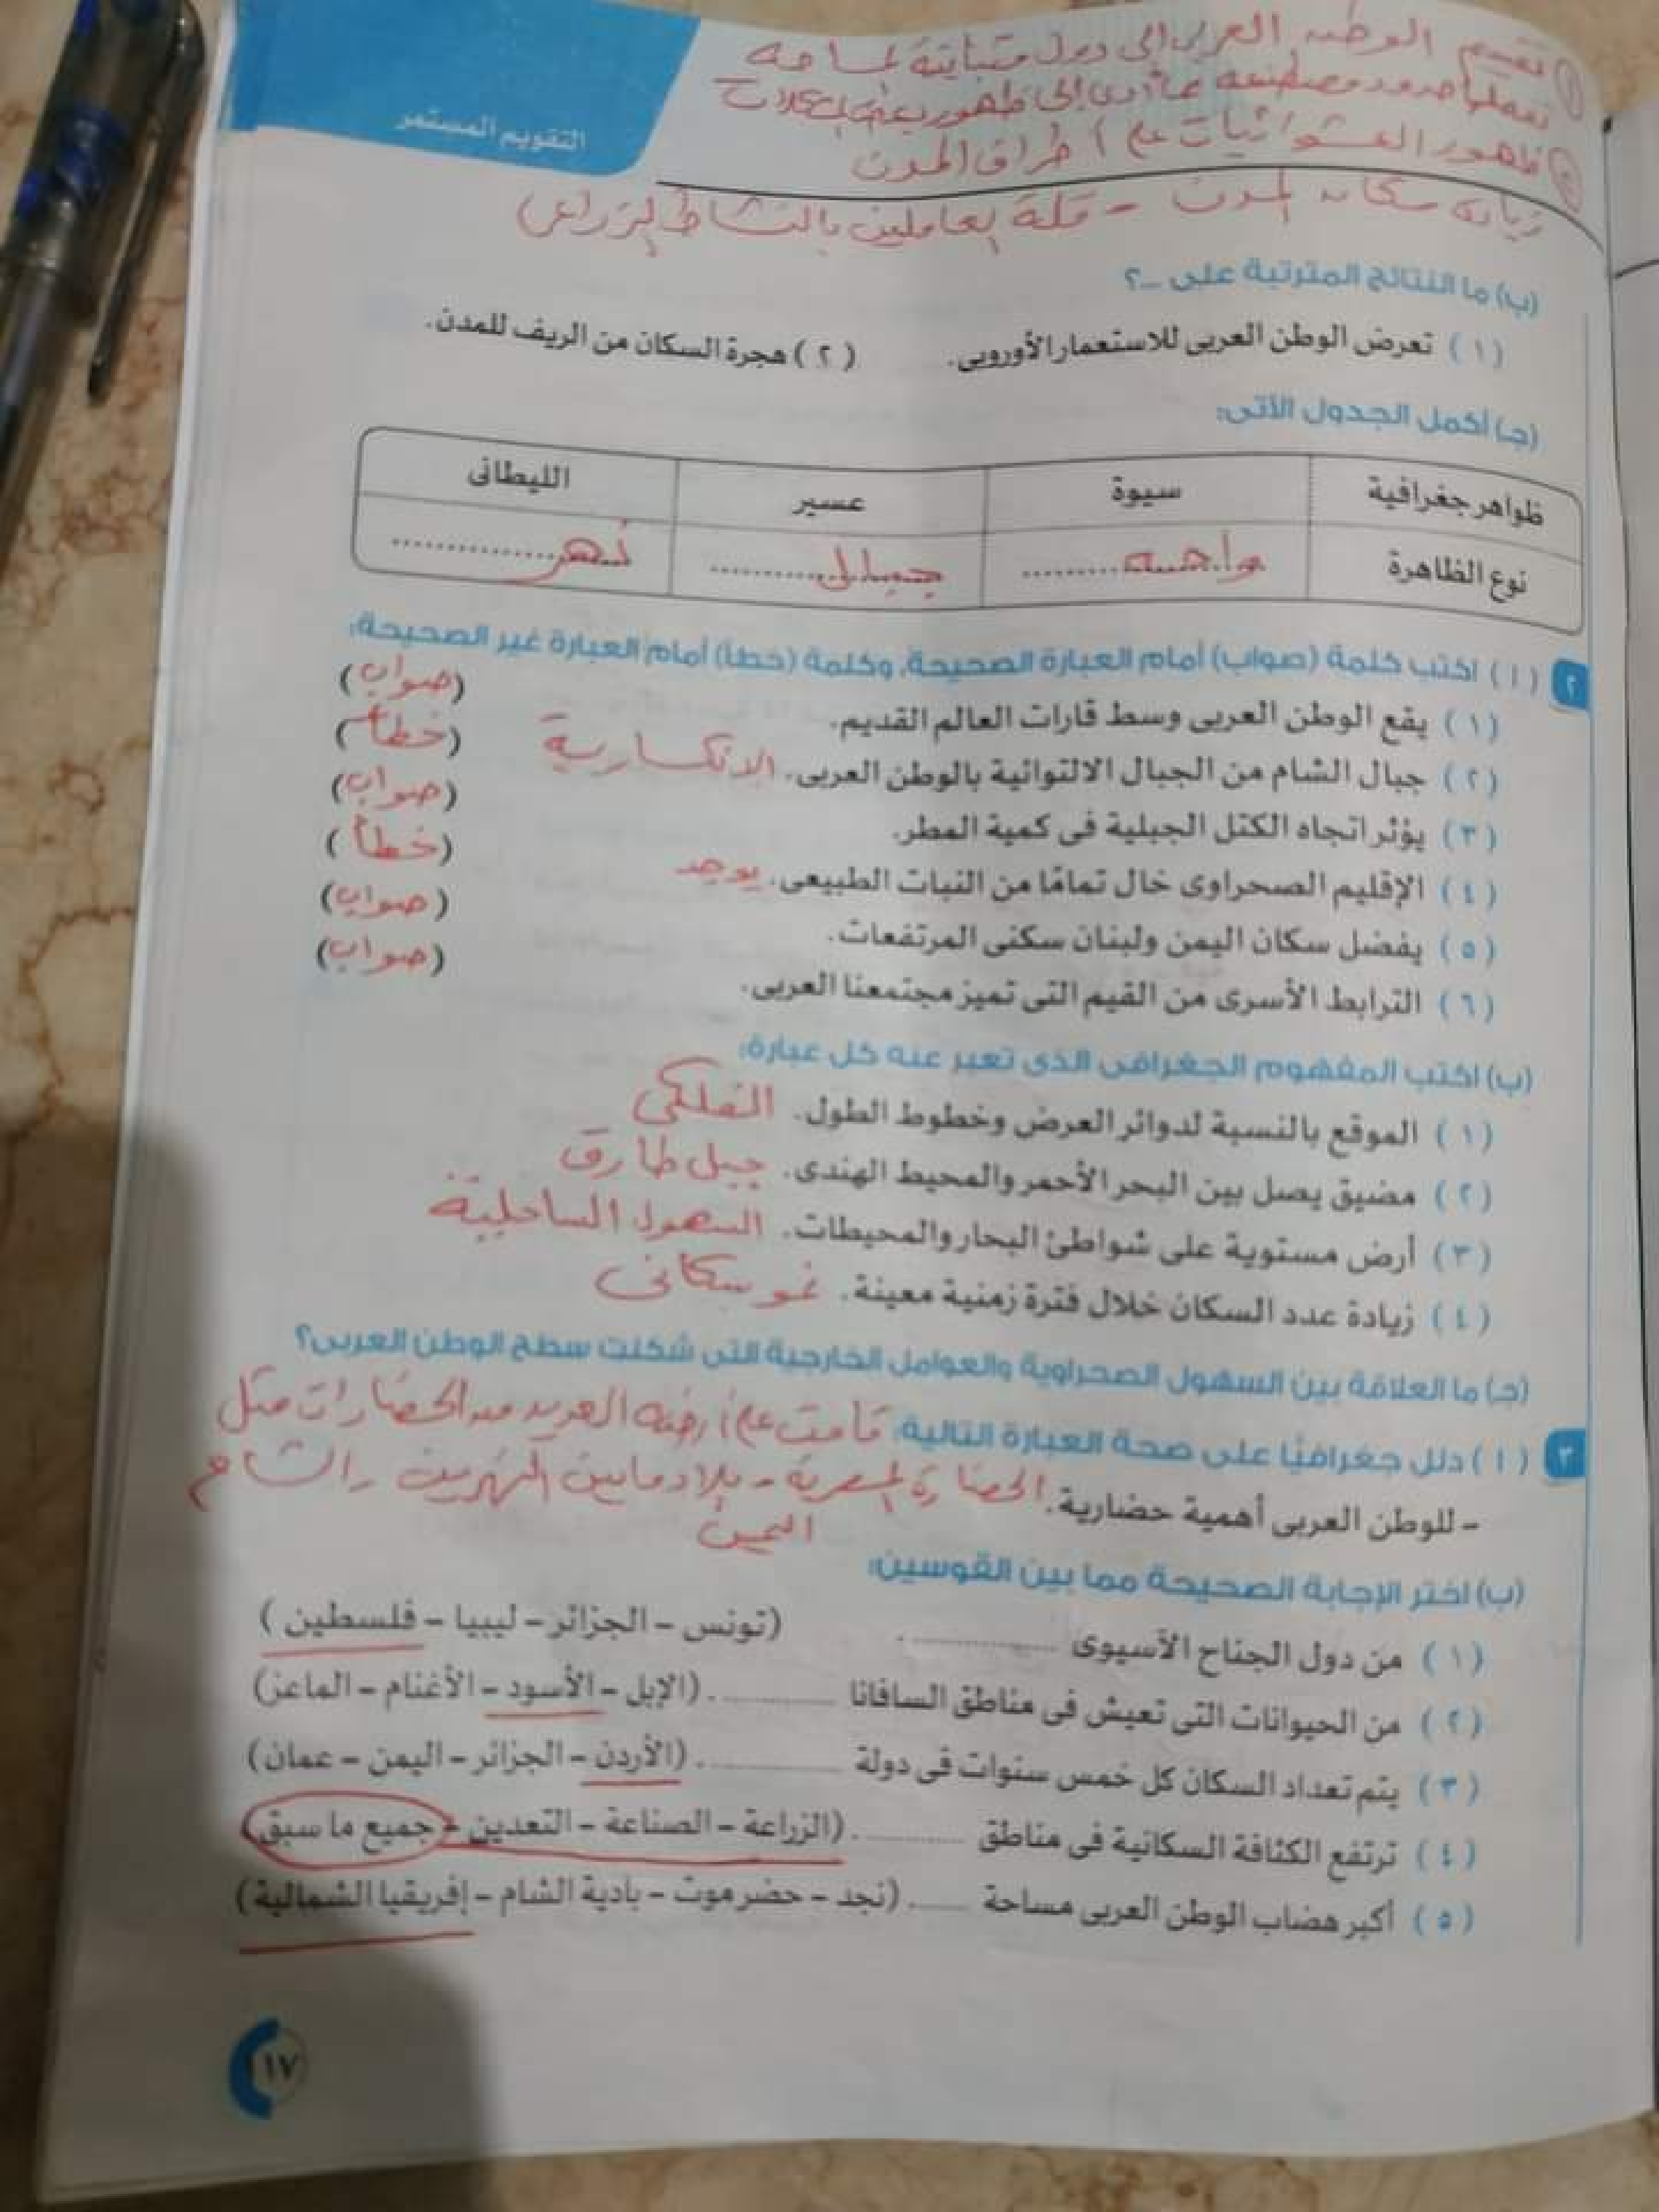 ① تقسيم الوطن العربى إلى دول متباينة المساحة
حدود مصطنعة مما أدى إلى ظهور بعض المشكلات
② ظهور العشوائيات على أطراف المدن
زيادة سكان المدن - قلة العاملين بالنشاط الزراعى
التقويم المستمر
(ب) ما النتائج المترتبة على ...؟
(١) تعرض الوطن العربى للاستعمار الأوروبى. (٢) هجرة السكان من الريف للمدن.
(جـ) أكمل الجدول الآتى:
ظواهر جغرافية سيوة عسير الليطانى
نوع الظاهرة واحة جبال نهر
٢ (١) اكتب كلمة (صواب) أمام العبارة الصحيحة، وكلمة (خطأ) أمام العبارة غير الصحيحة:
(١) يقع الوطن العربى وسط قارات العالم القديم. (صواب)
(٢) جبال الشام من الجبال الالتوائية بالوطن العربى. الانكسارية (خطأ)
(٣) يؤثر اتجاه الكتل الجبلية فى كمية المطر. (صواب)
(٤) الإقليم الصحراوى خال تمامًا من النبات الطبيعى. يوجد (خطأ)
(٥) يفضل سكان اليمن ولبنان سكنى المرتفعات. (صواب)
(٦) الترابط الأسرى من القيم التى تميز مجتمعنا العربى. (صواب)
(ب) اكتب المفهوم الجغرافى الذى تعبر عنه كل عبارة:
(١) الموقع بالنسبة لدوائر العرض وخطوط الطول. الفلكى
(٢) مضيق يصل بين البحر الأحمر والمحيط الهندى. جبل طارق
(٣) أرض مستوية على شواطئ البحار والمحيطات. السهول الساحلية
(٤) زيادة عدد السكان خلال فترة زمنية معينة. نمو سكانى
(جـ) ما العلاقة بين السهول الصحراوية والعوامل الخارجية التى شكلت سطح الوطن العربى؟
٣ (١) دلل جغرافيًا على صحة العبارة التالية: قامت على أرضه العديد من الحضارات مثل
- للوطن العربى أهمية حضارية. الحضارة المصرية - بلاد ما بين النهرين - الشام
اليمن
(ب) اختر الإجابة الصحيحة مما بين القوسين:
(١) من دول الجناح الآسيوى .......... . (تونس - الجزائر - ليبيا - فلسطين)
(٢) من الحيوانات التى تعيش فى مناطق السافانا .......... . (الإبل - الأسود - الأغنام - الماعز)
(٣) يتم تعداد السكان كل خمس سنوات فى دولة .......... . (الأردن - الجزائر - اليمن - عمان)
(٤) ترتفع الكثافة السكانية فى مناطق .......... . (الزراعة - الصناعة - التعدين - جميع ما سبق)
(٥) أكبر هضاب الوطن العربى مساحة ...... . (نجد - حضرموت - بادية الشام - إفريقيا الشمالية)
١١٧